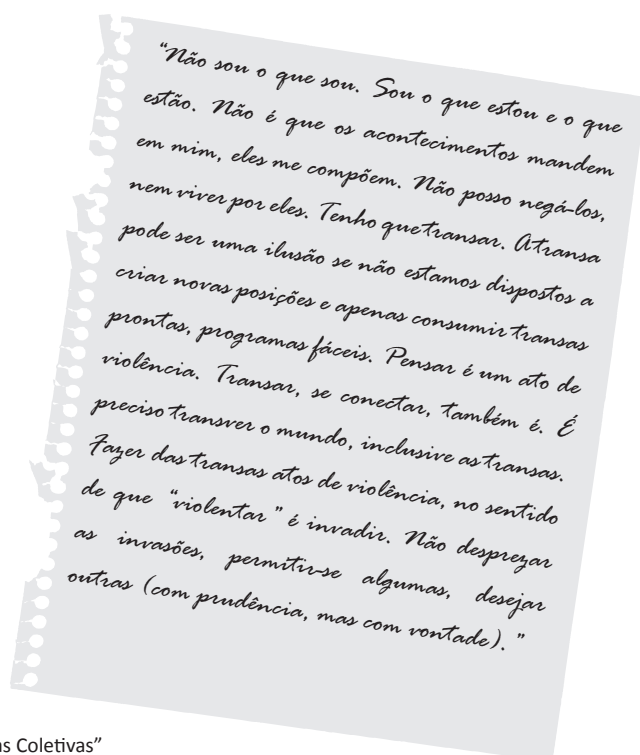 “Não sou o que sou. Sou o que estou e o que
estão. Não é que os acontecimentos mandem
em mim, eles me compõem. Não posso negá-los,
nem viver por eles. Tenho que transar. A transa
pode ser uma ilusão se não estamos dispostos a
criar novas posições e apenas consumir transas
prontas, programas fáceis. Pensar é um ato de
violência. Transar, se conectar, também é. É
preciso transver o mundo, inclusive as transas.
Fazer das transas atos de violência, no sentido
de que “violentar” é invadir. Não desprezar
as invasões, permitir-se algumas, desejar
outras (com prudência, mas com vontade).”
as Coletivas”